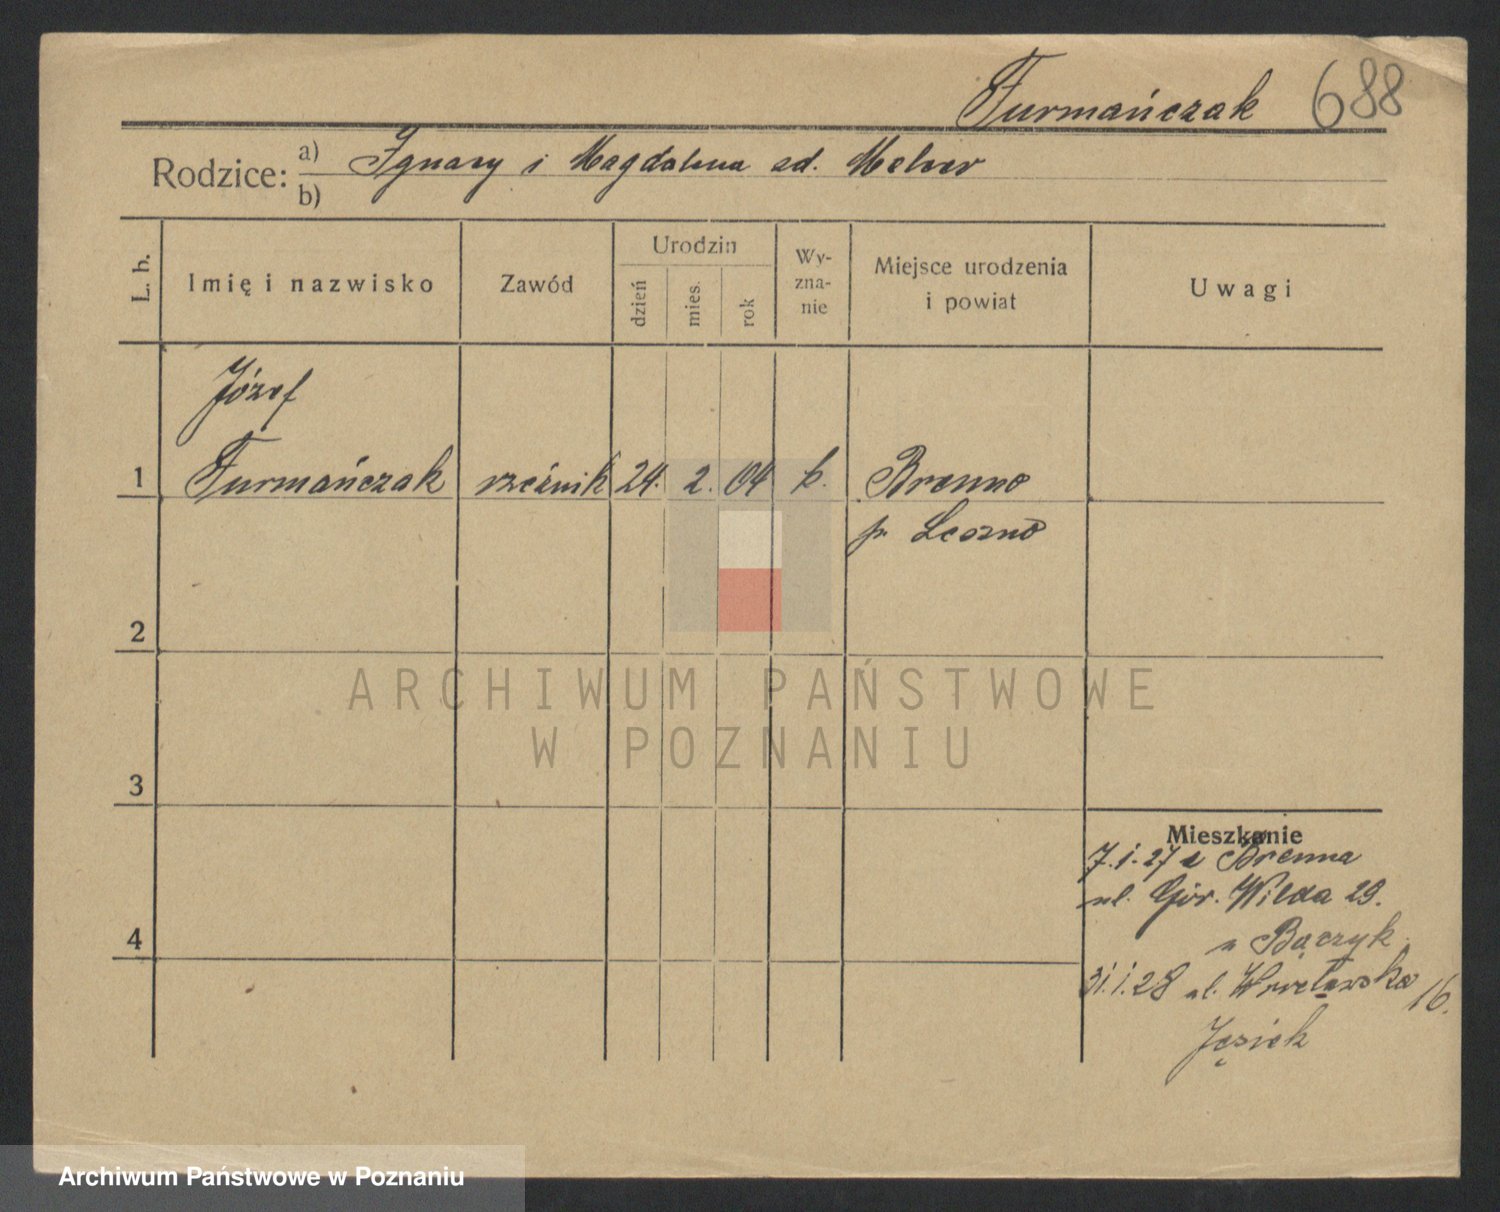 Furmańczak 688
Rodzice: a) Ignacy i Magdalena zd.
b)
L. b.
Imię i nazwisko
Zawód
Urodzin
dzień
mies.
rok
Wy-
zna-
nie
Miejsce urodzenia
i powiat
Uwagi
Józef
1 Furmańczak rzeźnik 24. 2. 04 k. Brenno
p. Leszno
2
3
4
Mieszkanie
7.1.27 z Brenna
ul. Gór. Wilda 29.
u Bączyk
31.1.28 ul. Wrocławska 16.
ARCHIWUM PAŃSTWOWE
W POZNANIU
Archiwum Państwowe w Poznaniu